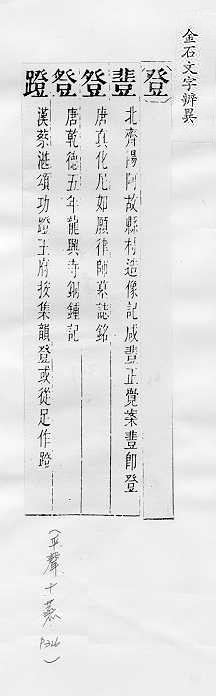 金石文字辨異
登
豊 北齊陽阿故縣村造像記咸豊正覺案豊即登
登 唐真化尼如願律師墓誌銘
登 唐乾德五年龍興寺銅鍾記
蹬 漢蔡湛頌功蹬王府按集韻登或從足作蹬
(平聲十蒸 P326)